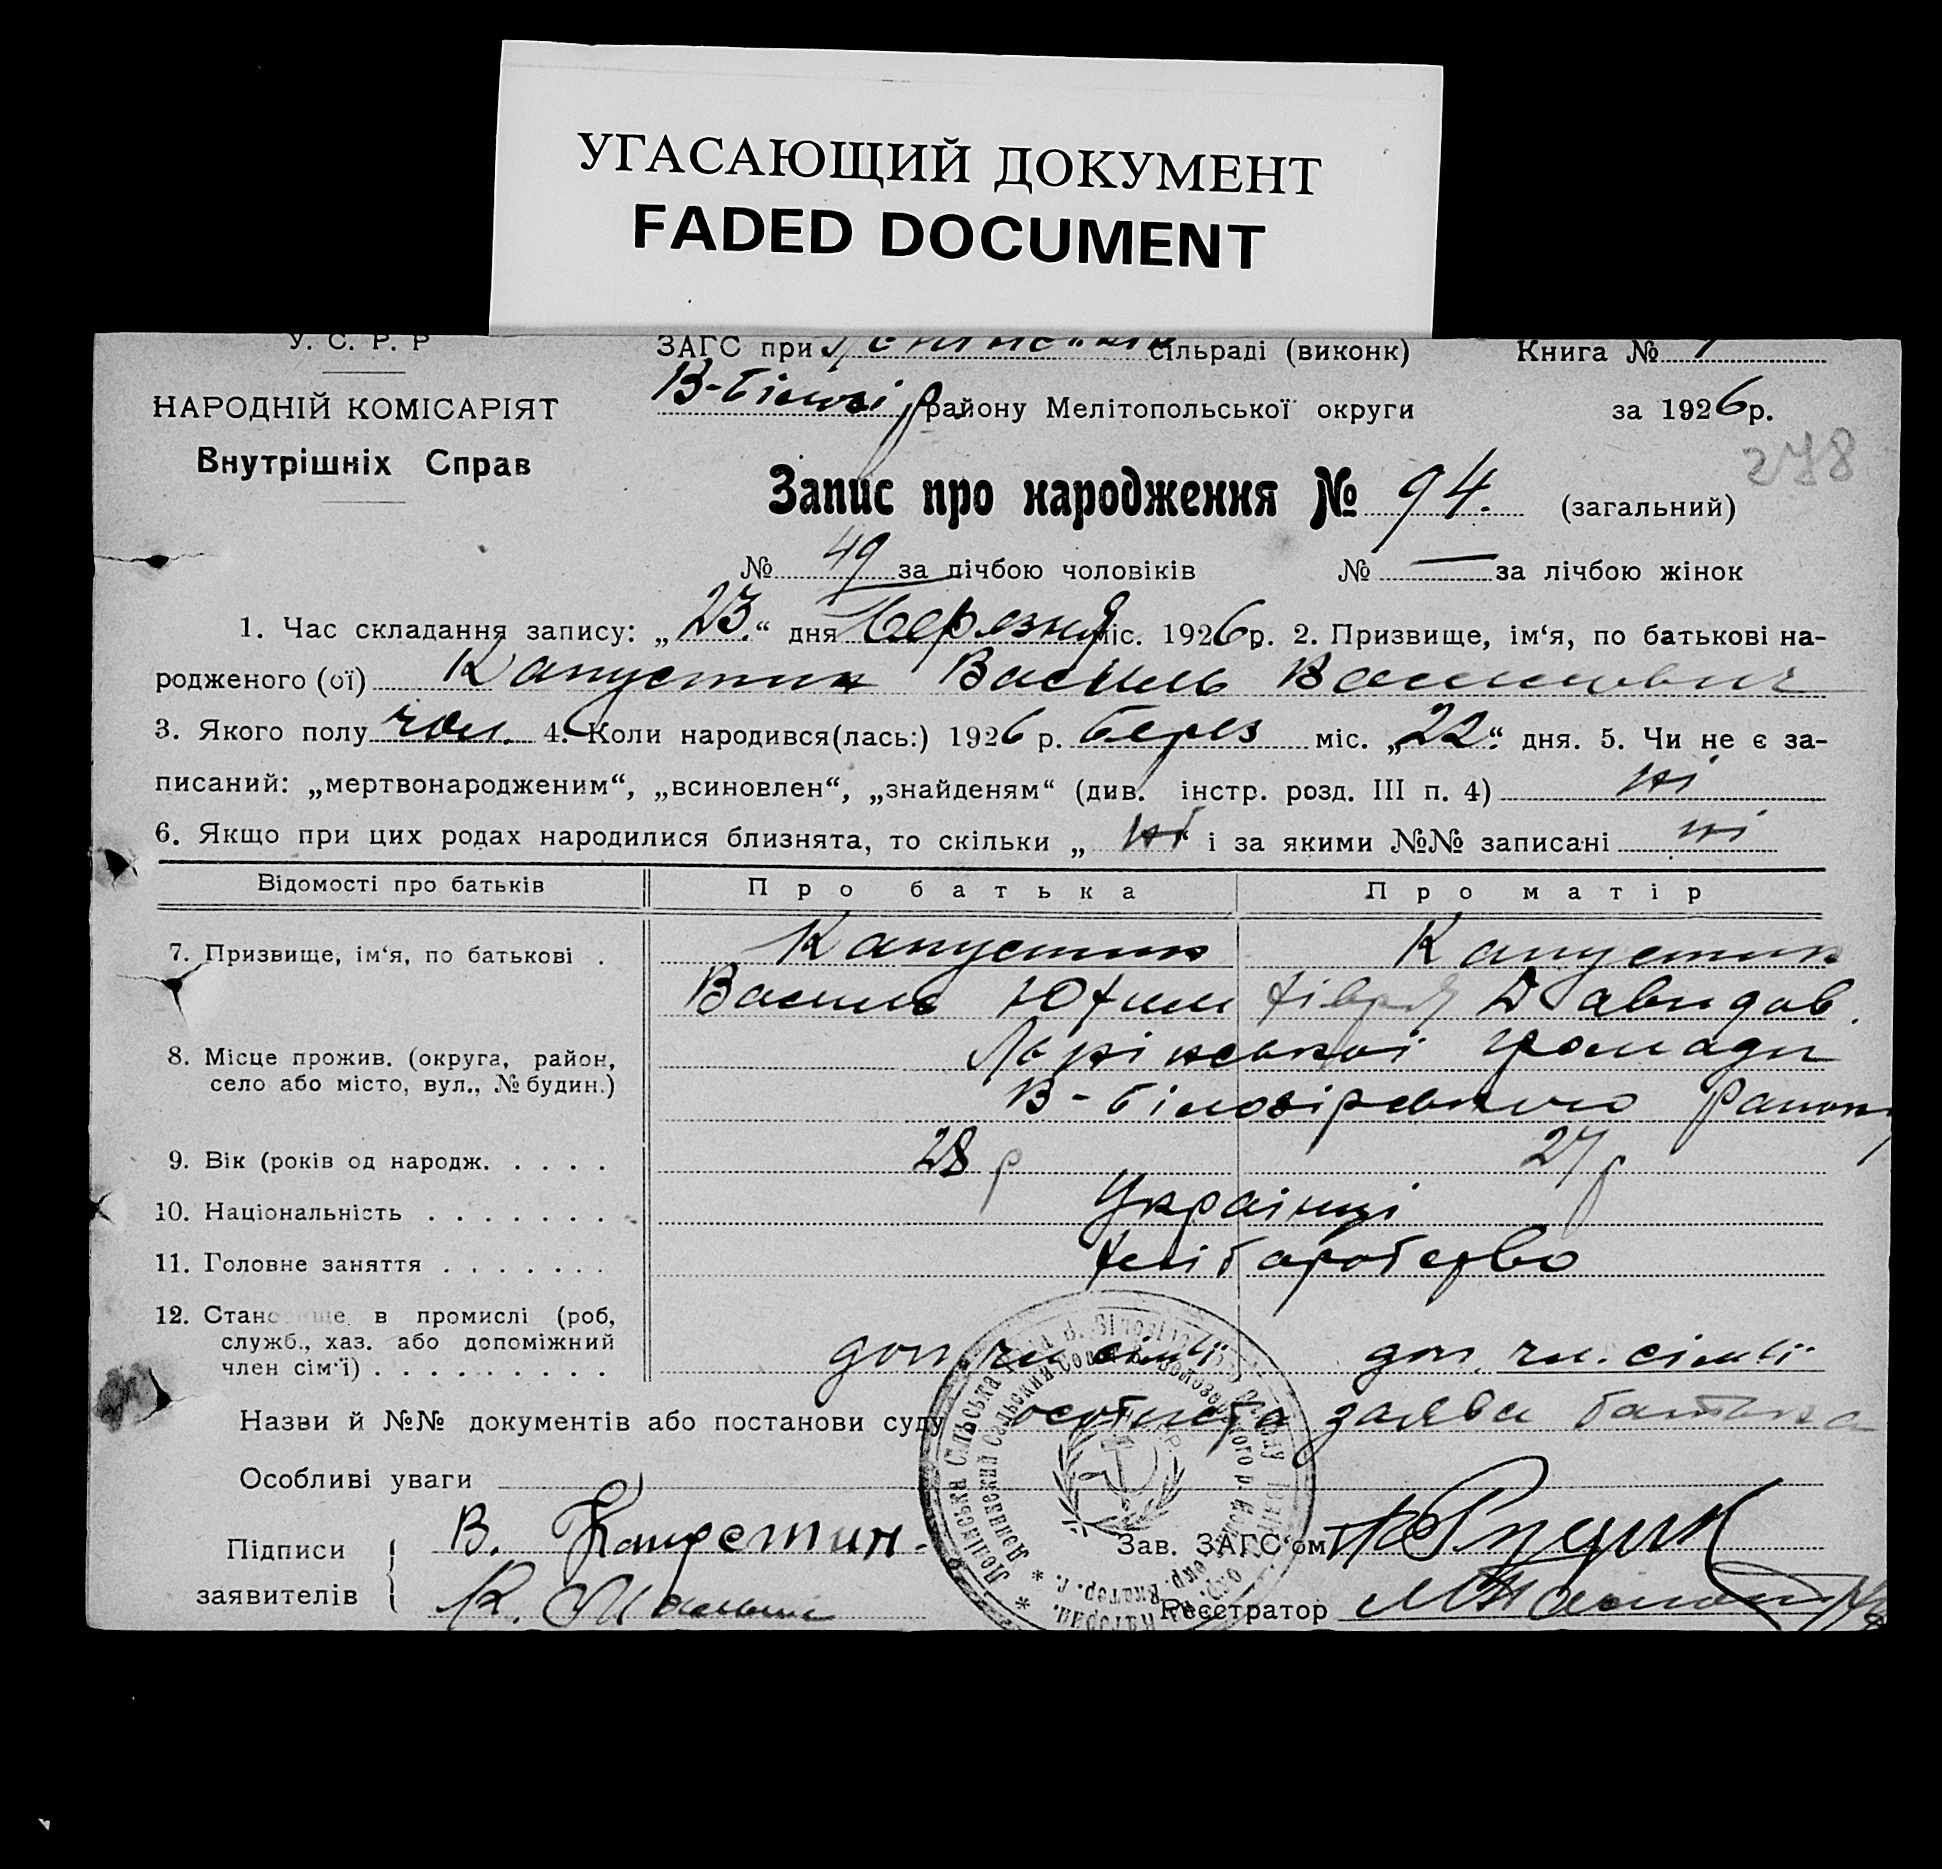 УГАСАЮЩИЙ ДОКУМЕНТ
FADED DOCUMENT
У. С. Р. Р
ЗАГС при сільраді (виконк)
Книга № 1
НАРОДНІЙ КОМІСАРІЯТ
В-білозі р. району Мелітопольської округи
за 1926 р.
Внутрішніх Справ
278
Запис про народження № 94. (загальний)
№ 49 за лічбою чоловіків № — за лічбою жінок
1. Час складання запису: „23.“ дня березня міс. 1926 р. 2. Призвище, ім‘я, по батькові на-
родженого (ої) Капустин Василь Васильович
3. Якого полу чол. 4. Коли народився(лась:) 1926 р. берез міс. „22.“ дня. 5. Чи не є за-
писаний: „мертвонародженим“, „всиновлен“, „знайденям“ (див. інстр. розд. III п. 4) ні
6. Якщо при цих родах народилися близнята, то скільки „ні“ і за якими №№ записані ні
Відомості про батьків Про батька Про матір
7. Призвище, ім‘я, по батькові . Капустин Капустин
Василь Юхим Давидов.
8. Місце прожив. (округа, район, громади
село або місто, вул., № будин.) В-білозірського району
9. Вік (років од народж. . . . . 28 р 27 р
10. Національність . . . . . . . Українці
11. Головне заняття . . . . . . . хліборобство
12. Становище в промислі (роб,
служб., хаз. або допоміжний доп. чл. сімї доп. чл. сімї
член сім‘ї) . . . . . . . . .
Назви й №№ документів або постанови суду особиста заява батька
Особливі уваги
Підписи В. Капустин. Зав. ЗАГС‘ом
заявителів К. Реєстратор